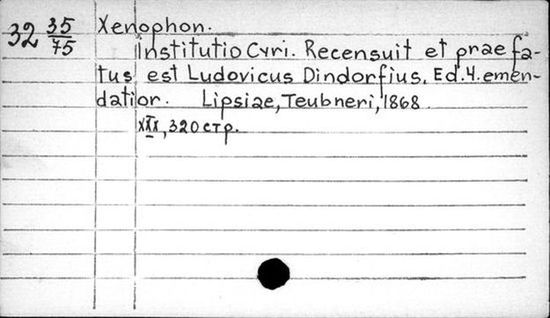 32 35/75
Xenophon.
Institutio Cyri. Recensuit et praefa-
tus est Ludovicus Dindorfius. Ed. 4. emen-
datior. Lipsiae, Teubneri, 1868.
XXX, 320 стр.